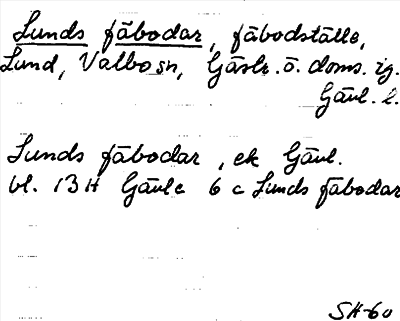 Lunds fäbodar, fäbodställe,
Lund, Valbo sn, Gästr. ö. doms. ig.
Gävl. l.
Lunds fäbodar, ek Gävl.
bl. 13H Gävle 6 c Lunds fäbodar
SH-60